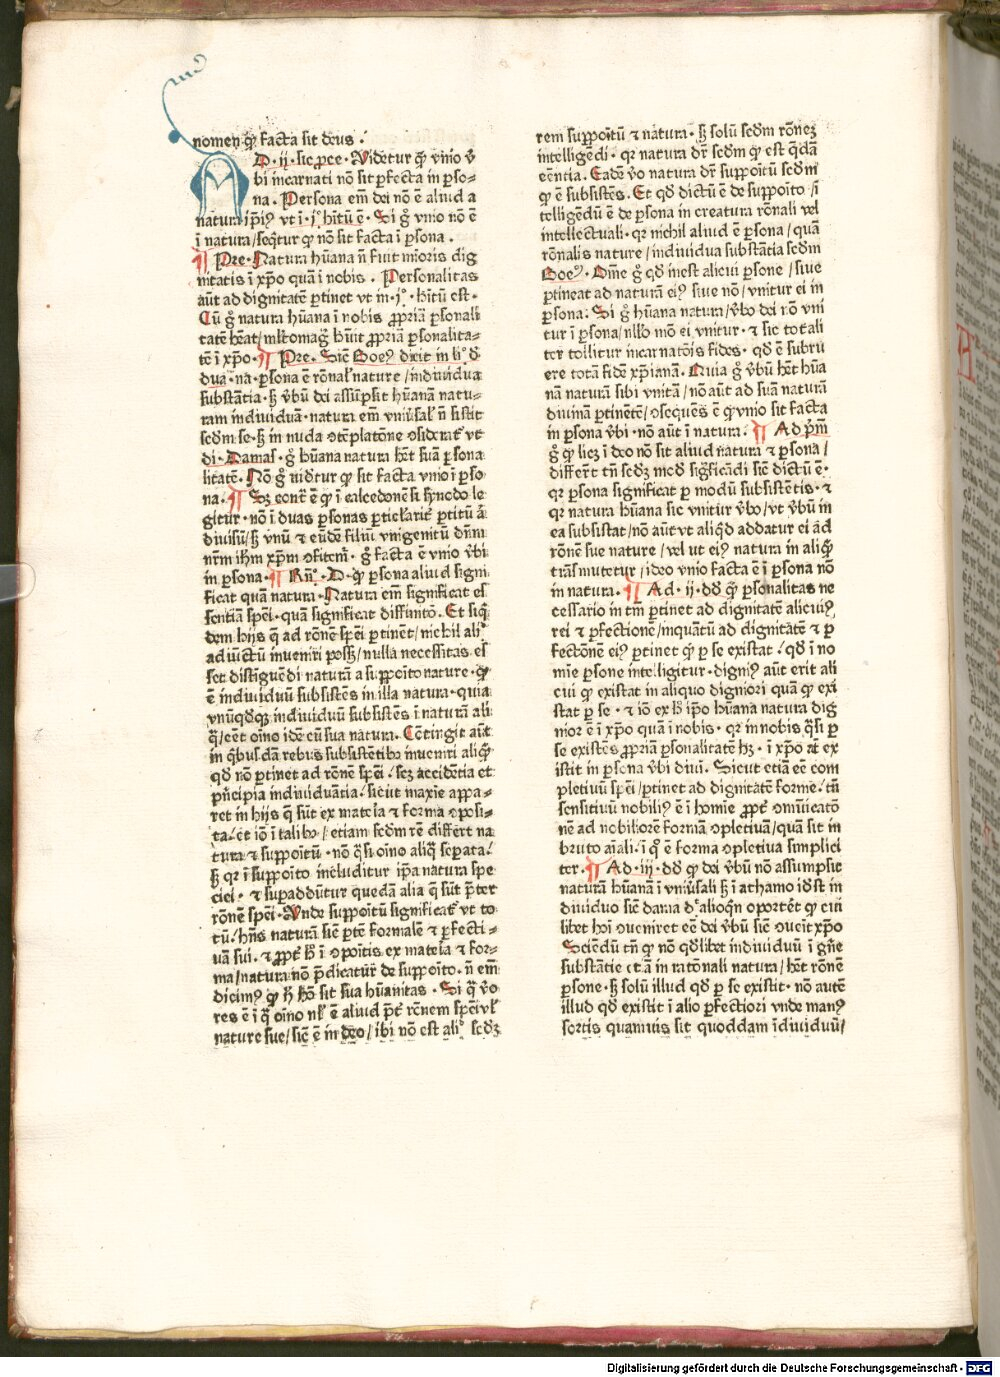 nomen qͦ facta sit deus ·
AD · ij · sic ꝓce · Videtur qp̄ vnio v̄
bi incarnati nō sit ꝑfecta in ꝑso⸗
na · Persona em̄ dei nō ē aliud a
natura ip̄iꝰ vt i · jͦ hitū ē · Si gͦ vnio nō ē
ī natura / seq̄tur qp nō sit facta ī ꝑsona ·
¶ Pre · Natura hūana n̄ fuit mīoris dig
nitatis ī xp̄o quā ī nobis · Personalitas
aūt ad dignitatē ꝑtinet vt in · jͦ · hitū est ·
Cū gͦ natura hūana ī nobis ꝓpriā ꝑsonali
tatē hēat / mltomagͥ hūit ꝓpriā ꝑsonalita⸗
tē ī xp̄o · ¶ Pre · Sic̄ Boeꝰ dicit in liͦ d̄
dua · na · ꝑsona ē rōnal nature / indiuidua
substātia · sꝫ v̄bū dei assūpsit hūanā natu⸗
ram indiuiduā · natura em̄ vniūsal n̄ sistit
scdm se · sꝫ in nuda ꝯtēplatōne ꝯsiderat̄ vt
di · Damaſ · gͦ hūana natura hēt suā ꝑsona
litatē · Nō gͦ uidtur qp sit facta vnio ī ꝑso
na · ¶ Sꝫ contͣ ē qp ī calcedonēsi synodo le
gitur · nō ī duas ꝑsonas ꝑticlarit̄ ꝑtitū aͣ
diuisū / sꝫ vnū ⁊ eūdē filiū vnigenitū dn̄m
nr̄m ihm xp̄m ꝯfitem̄ · gͦ facta ē vnio v̄bi
in ꝑsona · ¶ Rn̄ · D · qp ꝑsona aliud signi
ficat quā natura · Natura em̄ significat es
sentiā spēi · quā significat diffinitō · Et siq̄
dem hijs q̄ ad rōnē spēi ꝑtinēt / nichil aliͦ
adiūctū inueniri possꝫ / nulla necessitas es
set distīguēdi naturā a supꝑoito nature · qp̄
ē indiuiduū subsistēs in illa natura · quia
vnūqd̄qꝫ indiuiduū subsistēs ī naturā ali
q̄ / eēt oīno idē cū sua natura · Cōtingit aūt
in q̄busdā rebus subsistētibꝫ inueniri aliq̄
qd̄ nō ꝑtinet ad rōnē spēi · scꝫ accidētia et
pn̄cipia indiuiduātia / sicut maxīe appa⸗
ret in hijs q̄ sūt ex materia ⁊ forma ꝯposi⸗
ta · et iō ī talibꝫ / etiam scdm rē differt na
tura ⁊ supꝑoitū · nō q̄si oīno aliq̄ sepata ·
sꝫ qr ī supꝑoito includitur ip̄a natura spe
ciei · ⁊ supaddūtur quedā alia q̄ sūt p̄ter
rōnē spēi · Vnde supꝑoitū significat̄ vt to⸗
tū · hn̄s naturā sic̄ ꝑtē formalē ⁊ ꝑfecti⸗
uā sui · ⁊ ꝓpt̄ hͦ ī ꝯpoitis ex materia ⁊ for⸗
ma / natura nō p̄dicatur de supꝑoito · n̄ em̄
dicimꝰ qp hͥ hō sit sua hūanitas · Si q̄ v̄o
res ē ī q̄ oīno nl ē aliud p̄t rōnem spēi vl
nature sue / sic̄ ē in deo / ibi nō est aliͦ scdꝫ
rem supꝑoitū ⁊ natura · sꝫ solū scdm rōneꝫ
intelligēdi · qr natura dr̄ scdm qp est q̄dā
eēntia · Eadē v̄o natura dr̄ supꝑoitū scdm
qp ē subsistēs · Et qd̄ dictū ē de supꝑoito / ī
telligēdū ē de ꝑsona in creatura rōnali vel
intellectuali · qr nichil aliud ē ꝑsona / quā
rōnalis nature / indiuidua substātia scdm
Boeꝰ · Om̄e gͦ qd̄ inest alicui ꝑsone / siue
ꝑtineat ad naturā eiꝰ siue nō / vnitur ei in
ꝑsona · Si gͦ hūana natura / v̄bo dei nō vni
tur ī ꝑsona / nllo mō ei vnitur · ⁊ sic totali
ter tollitur incarnatōis fides · qd̄ ē subru
ere totā fidē xp̄ianā · Quia gͦ v̄bū hēt hūa
nā naturā sibi vnitā / nō aūt ad suā naturā
diuinā ꝑtinētē / ꝯsequēs ē qp vnio sit facta
in ꝑsona v̄bi · nō aūt ī natura · ¶ Ad p̄m
gͦ qp licꝫ ī deo nō sit aliud natura ⁊ ꝑsona /
differēt tn̄ scdꝫ mod̄ sigͥficādi sic̄ dictū ē ·
qr ꝑsona significat ꝑ modū subsistētis · ⁊
qr natura hūana sic vnitur v̄bo / vt v̄bū in
ea subsistat / nō aūt vt aliqd̄ addatur ei ad
rōnē sue nature / vel ut eiꝰ natura in aliq̄
trāsmutetur / ideo vnio facta ē ī ꝑsona nō
in natura · ¶ Ad · ij · dd̄ qp̄ ꝑsonalitas ne
cessario in tm̄ ꝑtinet ad dignitatē alicuiꝰ
rei ⁊ ꝑfectionē / inquātū ad dignitatē ⁊ ꝑ
fectōnē eiꝰ ꝑtinet qp ꝑ se existat · qd̄ ī no
mīe ꝑsone intelligitur · digniꝰ aūt erit ali
cui qp existat in aliquo digniori quā qp exi
stat ꝑ se · ⁊ iō ex hͦ ip̄o hūana natura dig
nior ē ī xp̄o quā ī nobis · qr in nobis q̄si ꝑ
se existēs ꝓpriā ꝑsonalitatē hꝫ · ī xp̄o at̄ ex
istit in ꝑsona v̄bi diui · Sicut etiā eē com
pletiuū spēi / ꝑtinet ad dignitatē forme · tn̄
sensitiuū nobiliꝰ ē ī homīe ꝓpt̄ ꝯiūcatō
nē ad nobiliorē formā ꝯpletiuā / quā sit in
bruto aīali · ī qͦ ē forma ꝯpletiua simplici
ter · ¶ Ad · iij · dd̄ qp dei v̄bū nō assumpsit
naturā hūanā ī vniūsali sꝫ ī athamo id̄st in
diuiduo sic̄ dama dͤ alioqn̄ oportēt qp cui
libet hoī ꝯueniret eē dei v̄bū sic̄ ꝯueit xp̄o
Sciēdū tn̄ qp nō qd̄libet indiuiduū ī gn̄e
substātie etiā in ratōnali natura / hēt rōnē
ꝑsone · sꝫ solū illud qd̄ ꝑ se existit · nō autē
illud qd̄ existit ī alio ꝑfectiori vnde manꝰ
sortis quamuis sit quoddam īdiuiduū /
Digitalisierung gefördert durch die Deutsche Forschungsgemeinschaft - DFG